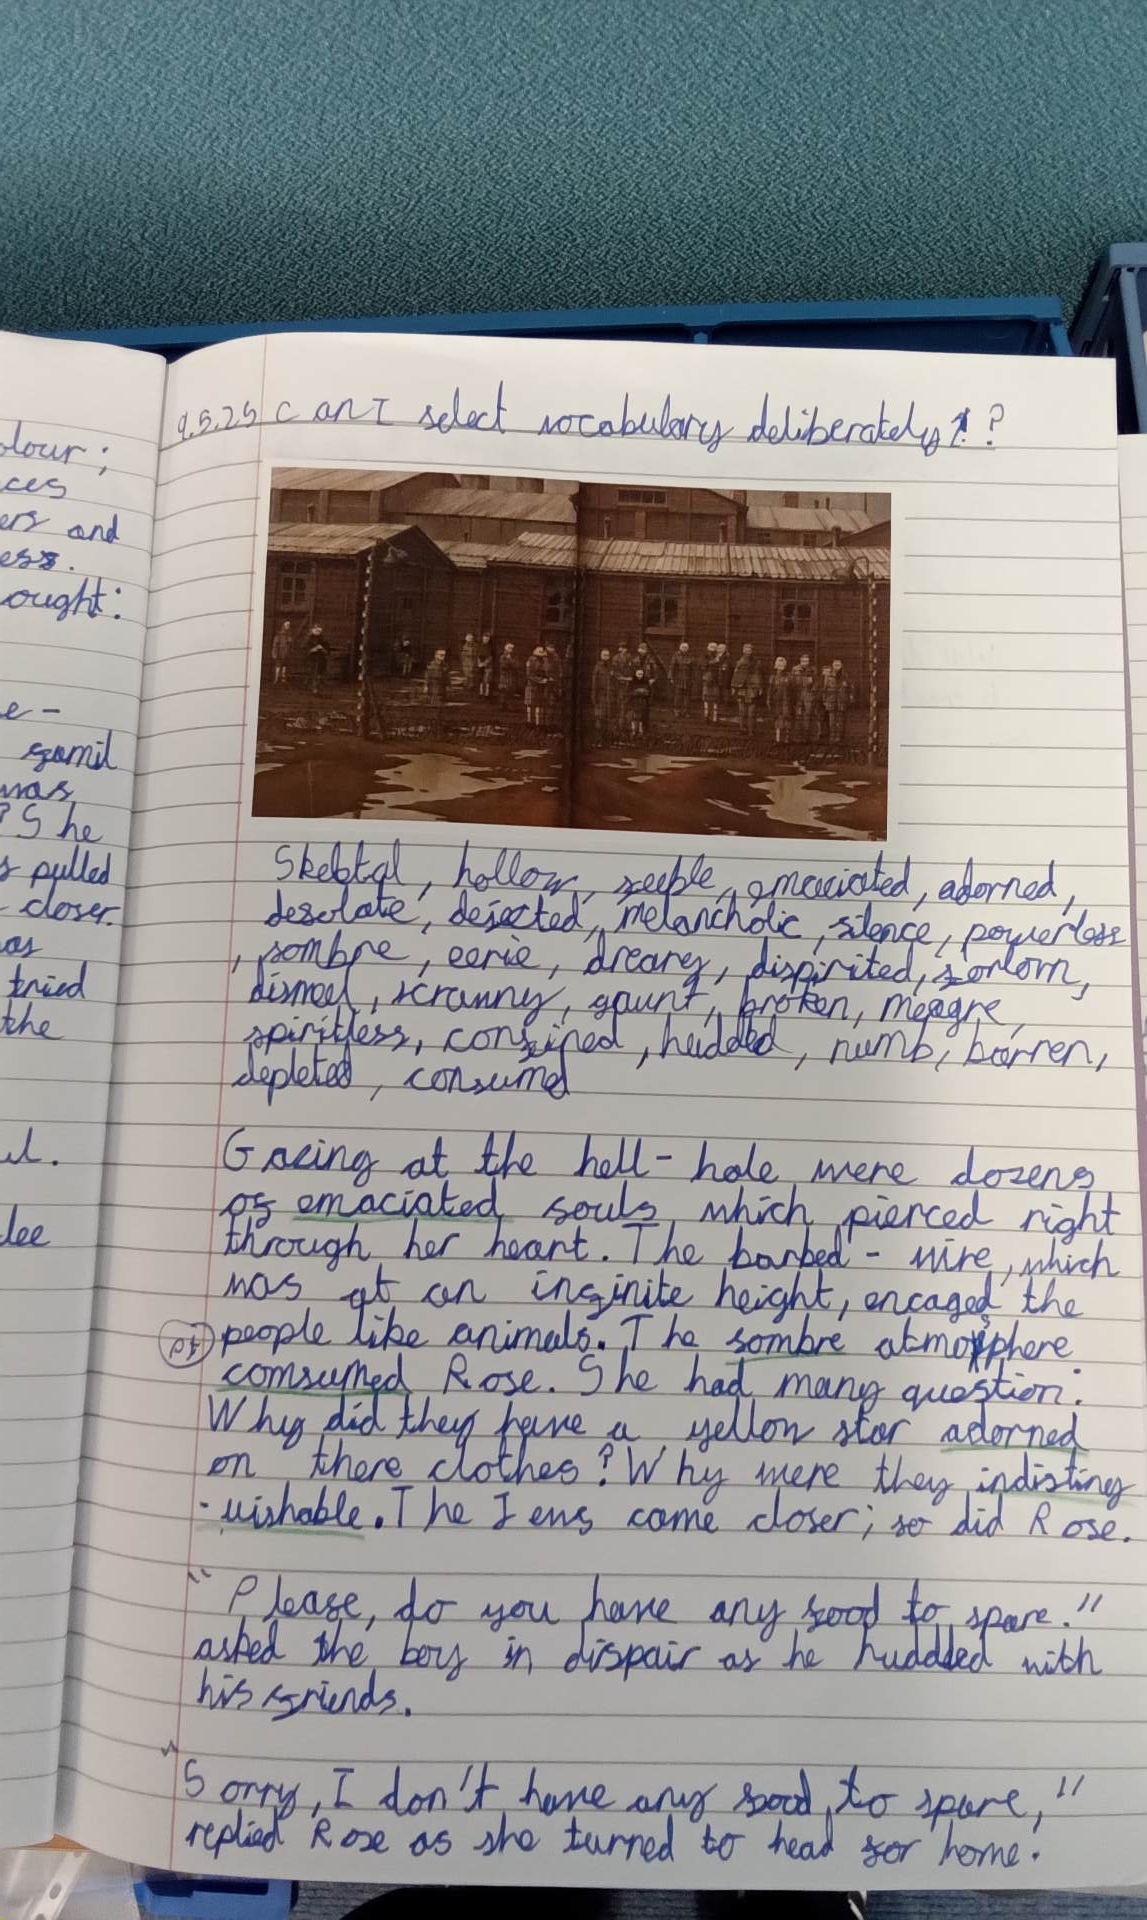 olour;
ces
ers and
ess.
ought:
e-
gamil
was
? She
s pulled
closer.
as
tried
the
ul.
lee
9.5.25 Can I select vocabulary deliberately?
Skeletal, hollow, feeble, emaciated, adorned,
desolate, dejected, melancholic, silence, powerless
, sombre, eerie, dreary, dispirited, forlorn,
dismal, scranny, gaunt, broken, meagre,
spiritless, confined, hudded, numb, barren,
depleted, consumed
Gazing at the hell-hole were dozens
of emaciated souls, which pierced right
through her heart. The barbed-wire, which
was at an infinite height, encaged the
people like animals. The sombre atmosphere
comsumed Rose. She had many question:
Why did they have a yellow star adorned
on there clothes? Why were they indisting
-uishable. The Jews came closer; so did Rose.
"Please, do you have any food to spare."
asked the boy in dispair as he huddled with
his friends.
"Sorry, I don't have any food to spare,"
replied Rose as she turned to head for home.